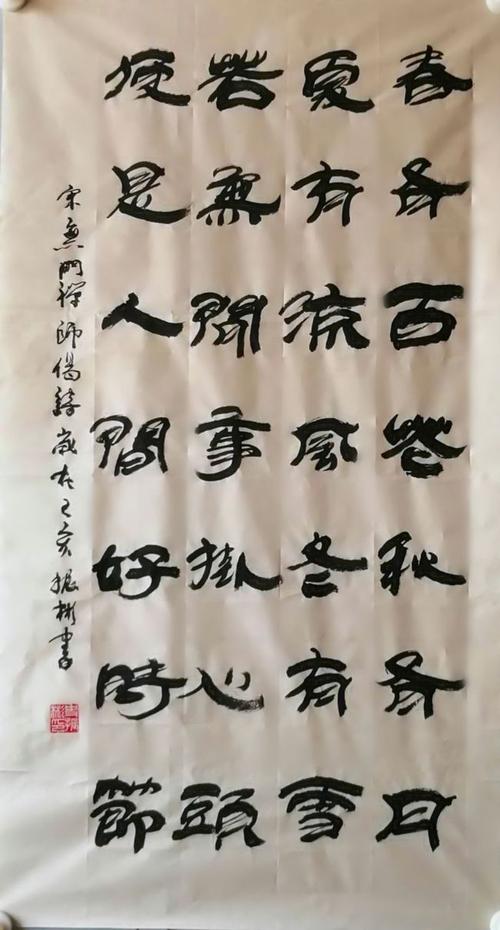 春有百花秋有月
夏有流風冬有雪
若無閒事掛心頭
便是人間好時節
宋無門禪師偈詩歲在己亥振彬書